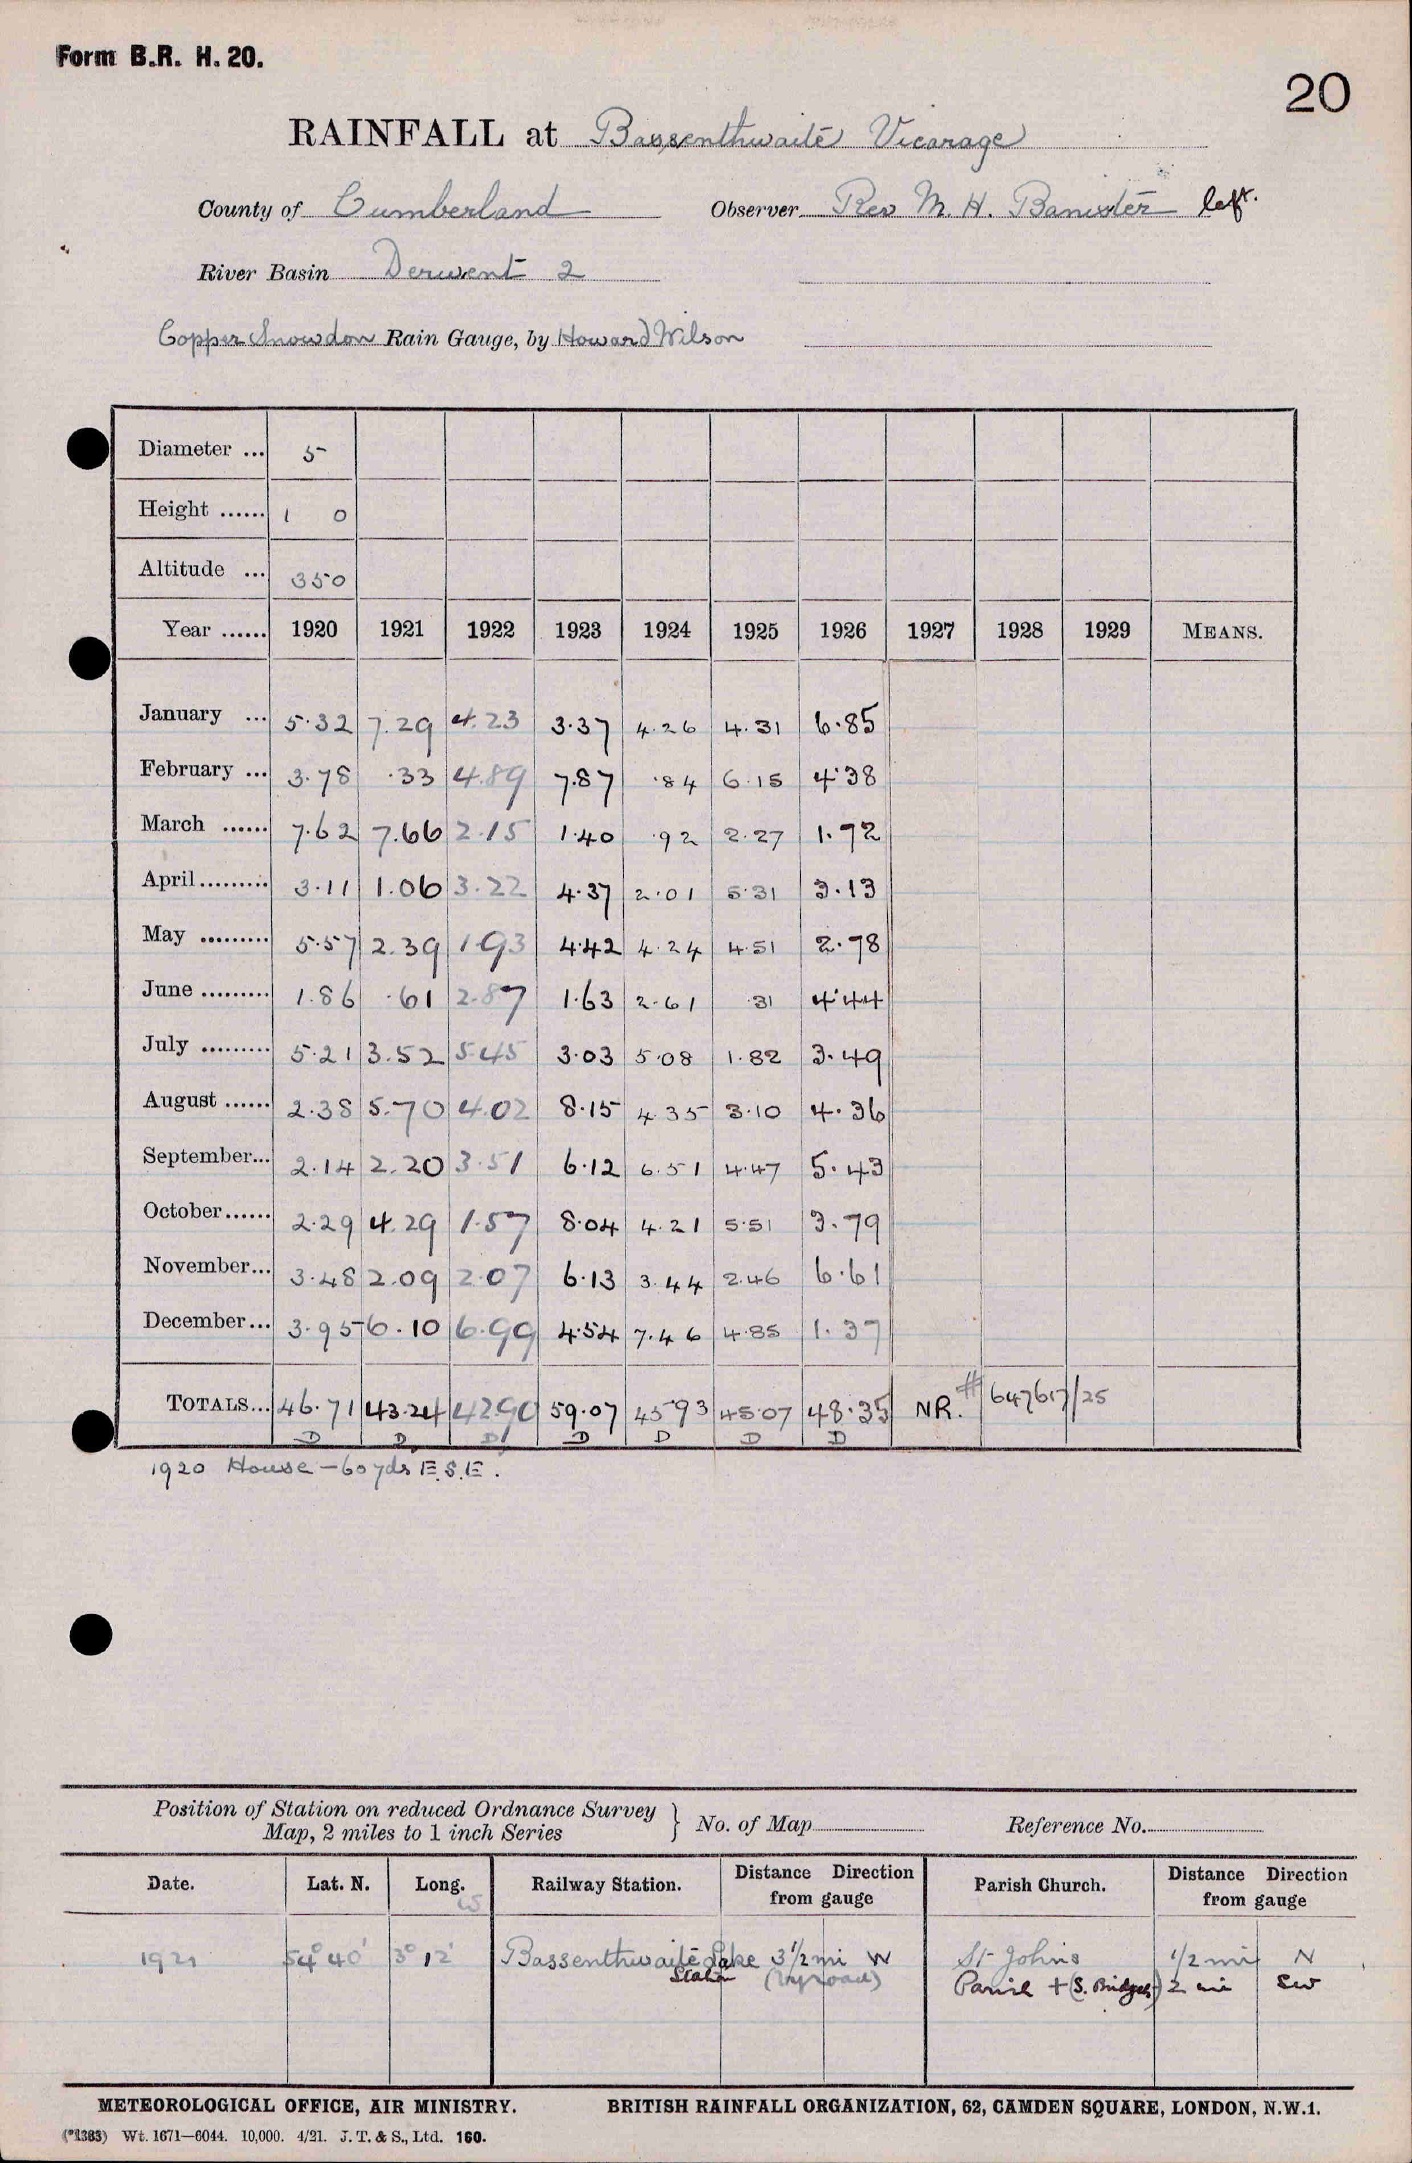 Form B.R. H. 20.
20
RAINFALL at Bassenthwaite Vicarage
County of Cumberland Observer Rev M. H. Banister left.
River Basin Derwent 2
Copper Snowdon Rain Gauge, by Howard Wilson
Diameter ... 5
Height ...... 1 0
Altitude ... 350
Year ...... 1920 1921 1922 1923 1924 1925 1926 1927 1928 1929 MEANS.
January ... 5.32 7.29 4.23 3.37 4.26 4.31 6.85
February ... 3.78 .33 4.89 7.87 .84 6.15 4.38
March ...... 7.62 7.66 2.15 1.40 .92 2.27 1.72
April......... 3.11 1.06 3.22 4.37 2.01 5.31 3.13
May ......... 5.57 2.39 1.93 4.42 4.24 4.51 2.78
June ......... 1.86 .61 2.87 1.63 2.61 .31 4.44
July ......... 5.21 3.52 5.45 3.03 5.08 1.82 3.49
August ...... 2.38 5.70 4.02 8.15 4.35 3.10 4.36
September... 2.14 2.20 3.51 6.12 6.51 4.47 5.43
October...... 2.29 4.29 1.57 8.04 4.21 5.51 3.79
November... 3.48 2.09 2.07 6.13 3.44 2.46 6.61
December... 3.95 6.10 6.99 4.54 7.46 4.85 1.37
TOTALS... 46.71 43.24 42.90 59.07 45.93 45.07 48.35 NR. # 647617/25
D D D D D D D
1920 House — 60 yds E.S.E.
Position of Station on reduced Ordnance Survey
Map, 2 miles to 1 inch Series } No. of Map Reference No.
Date. Lat. N. Long. W Railway Station. Distance Direction from gauge Parish Church. Distance Direction from gauge
1921 54° 40' 3° 12' Bassenthwaite Lake 3 1/2 mi W St Johns 1/2 mi N
Station (by road) Parish + (S. Bridget) 2 mi SW
METEOROLOGICAL OFFICE, AIR MINISTRY. BRITISH RAINFALL ORGANIZATION, 62, CAMDEN SQUARE, LONDON, N.W.1.
(*1383) Wt. 1671—6044. 10,000. 4/21. J. T. & S., Ltd. 160.